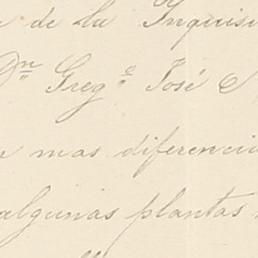 de la Inquisi
Dn Grege José
mas diferencia
algunas plantas